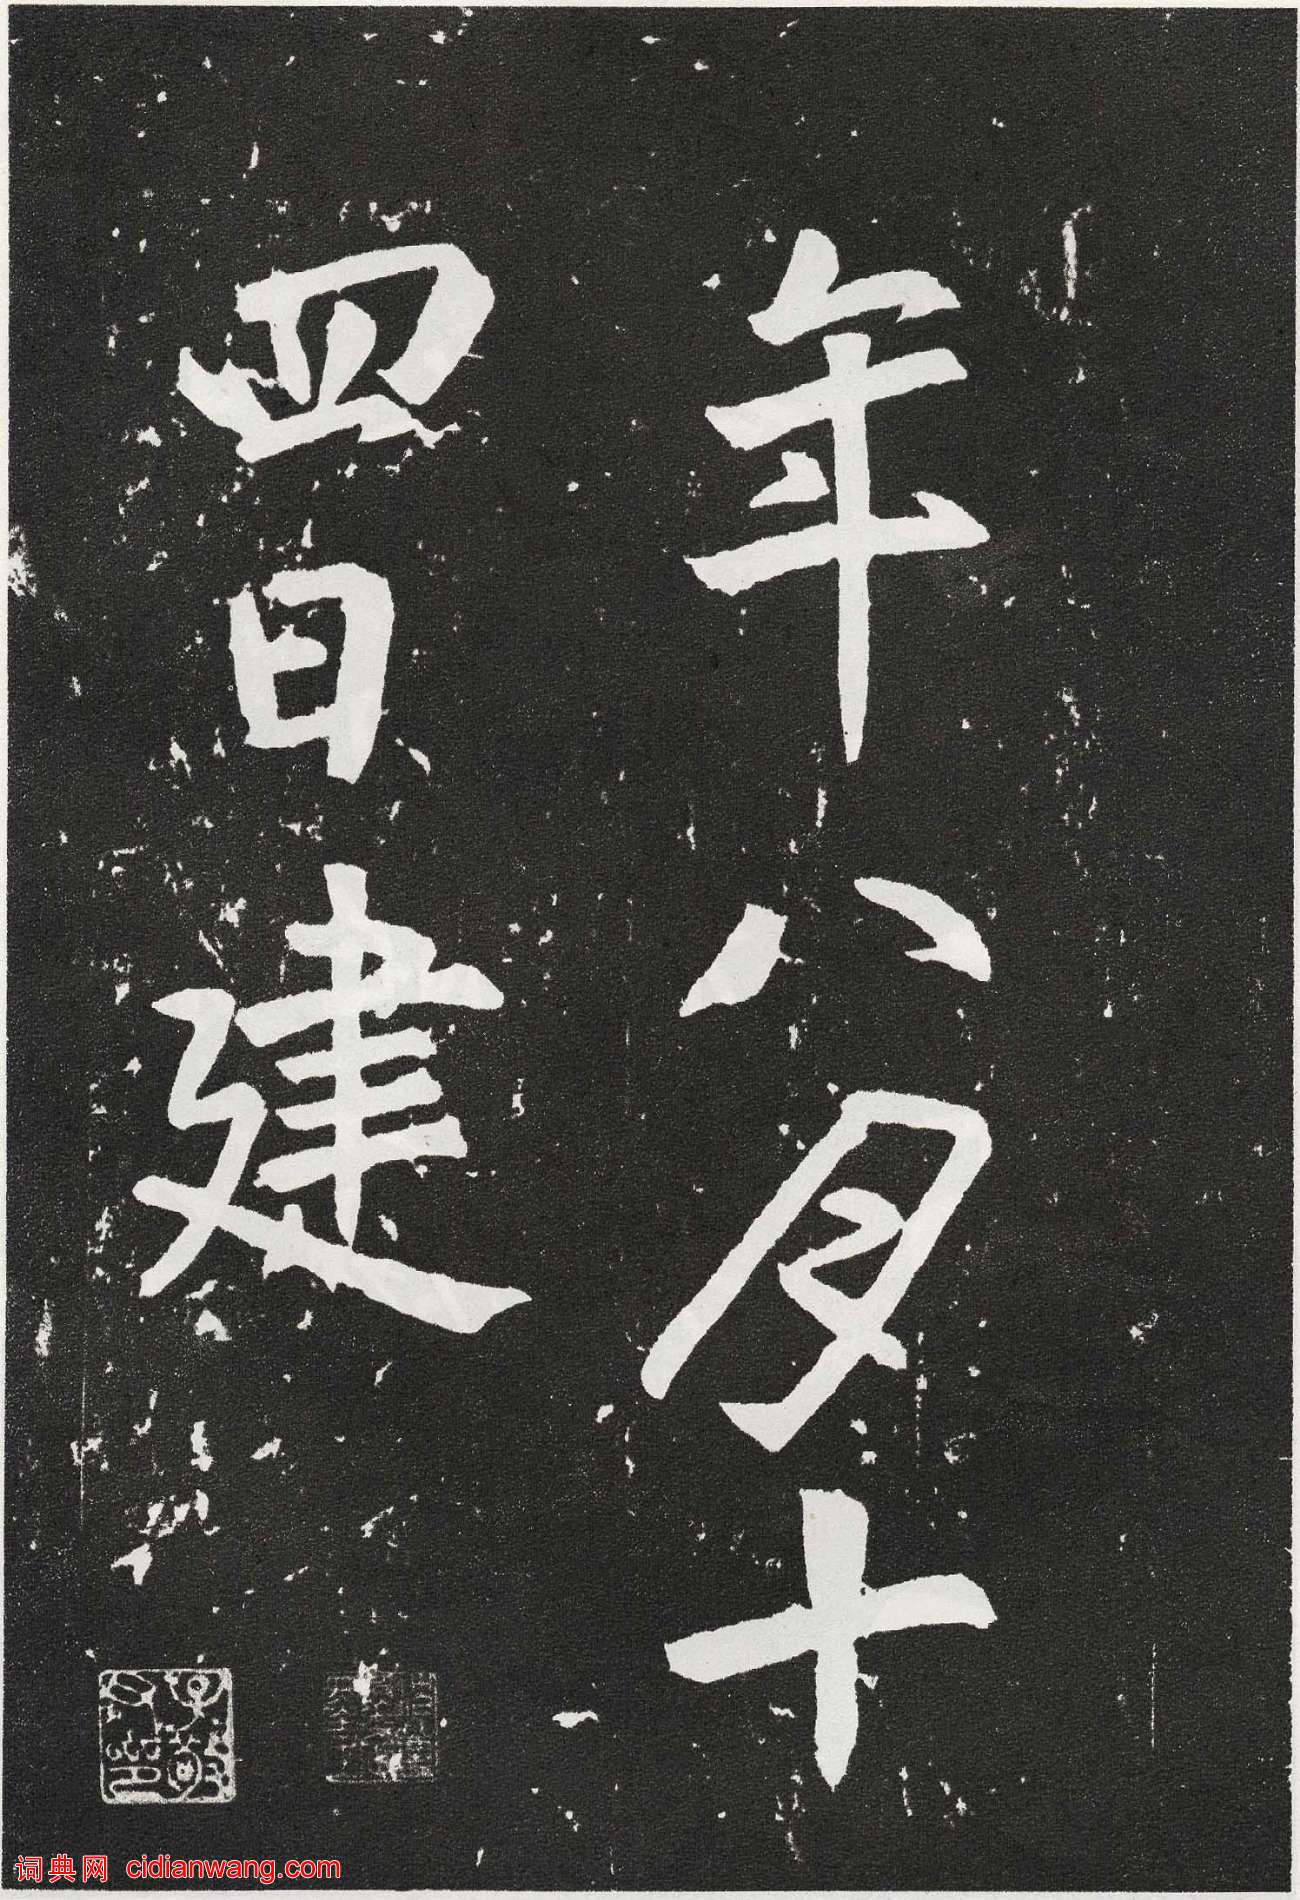 年八月十
四日建
词典网 cidianwang.com